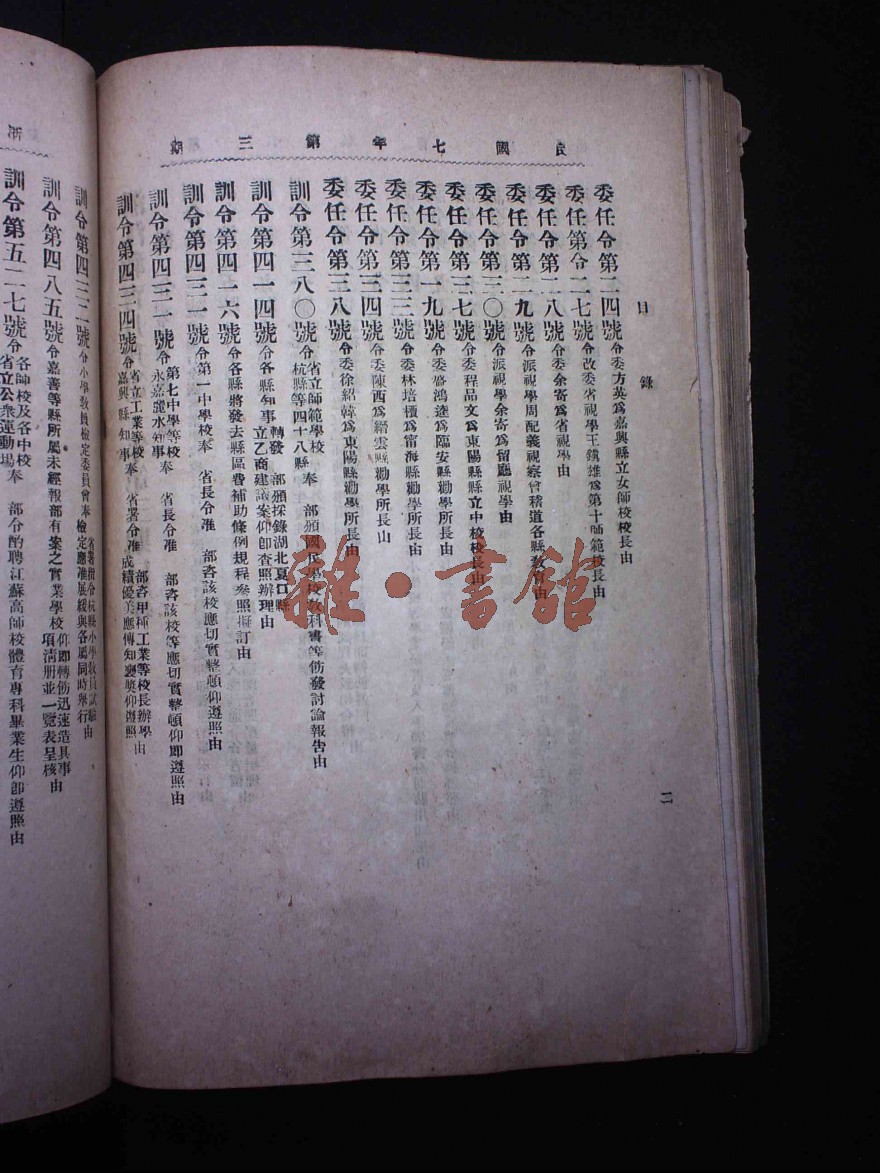 民國七年第三期
目錄
二
委任令第二四號 令委方英爲嘉興縣立女師校校長由
委任第令二七號 令改委省視學王鐵雄爲第十師範校長由
委任令第二八號 令委余寄爲省視學由
委任令第二九號 令派視學周配義視察會稽道各縣教育由
委任令第三〇號 令派視學余寄爲留廳視學由
委任令第三七號 令委程品文爲東陽縣縣立中校校長由
委任令第一九號 令委盛鴻逵爲臨安縣勸學所長由
委任令第三三號 令委林培櫃爲甯海縣勸學所長由
委任令第三四號 令委陳西爲縉雲縣勸學所長由
委任令第三八號 令委徐紹韓爲東陽縣勸學所長由
訓令第三八〇號 令省立師範學校杭縣等四十八縣奉 部頒國民學校教科書等仿發討論報告由
訓令第四一四號 令各縣知事轉發 部頒採錄湖北夏口縣立乙商建議案仰卽查照辦理由
訓令第四一六號 令各縣將發去縣區費補助條例規程參照擬訂由
訓令第四三一號 令第一中學校奉 省長令准 部咨該校應切實整頓仰遵照由
訓令第四三一號 令第七中學等校永嘉麗水知事奉 省長令准 部咨該校等應切實整頓仰卽遵照由
訓令第四三四號 令省立工業等校嘉興縣知事奉 省署令准 部咨甲種工業等校長辦學成績優美應傳知褒獎仰遵照由
訓令第四三二號 令小學教員檢定委員會奉 省署指令杭縣小學教員試驗檢定應准展緩與各屬同時舉行由
訓令第四八五號 令嘉善等縣所屬未經報部有案之實業學校仰卽轉飭迅速造具事項清册並一覽表呈核由
訓令第五二七號 令各師校及各中校省立公衆運動場奉 部令酌聘江蘇高師校體育專科畢業生仰卽遵照由
浙
雜·書館